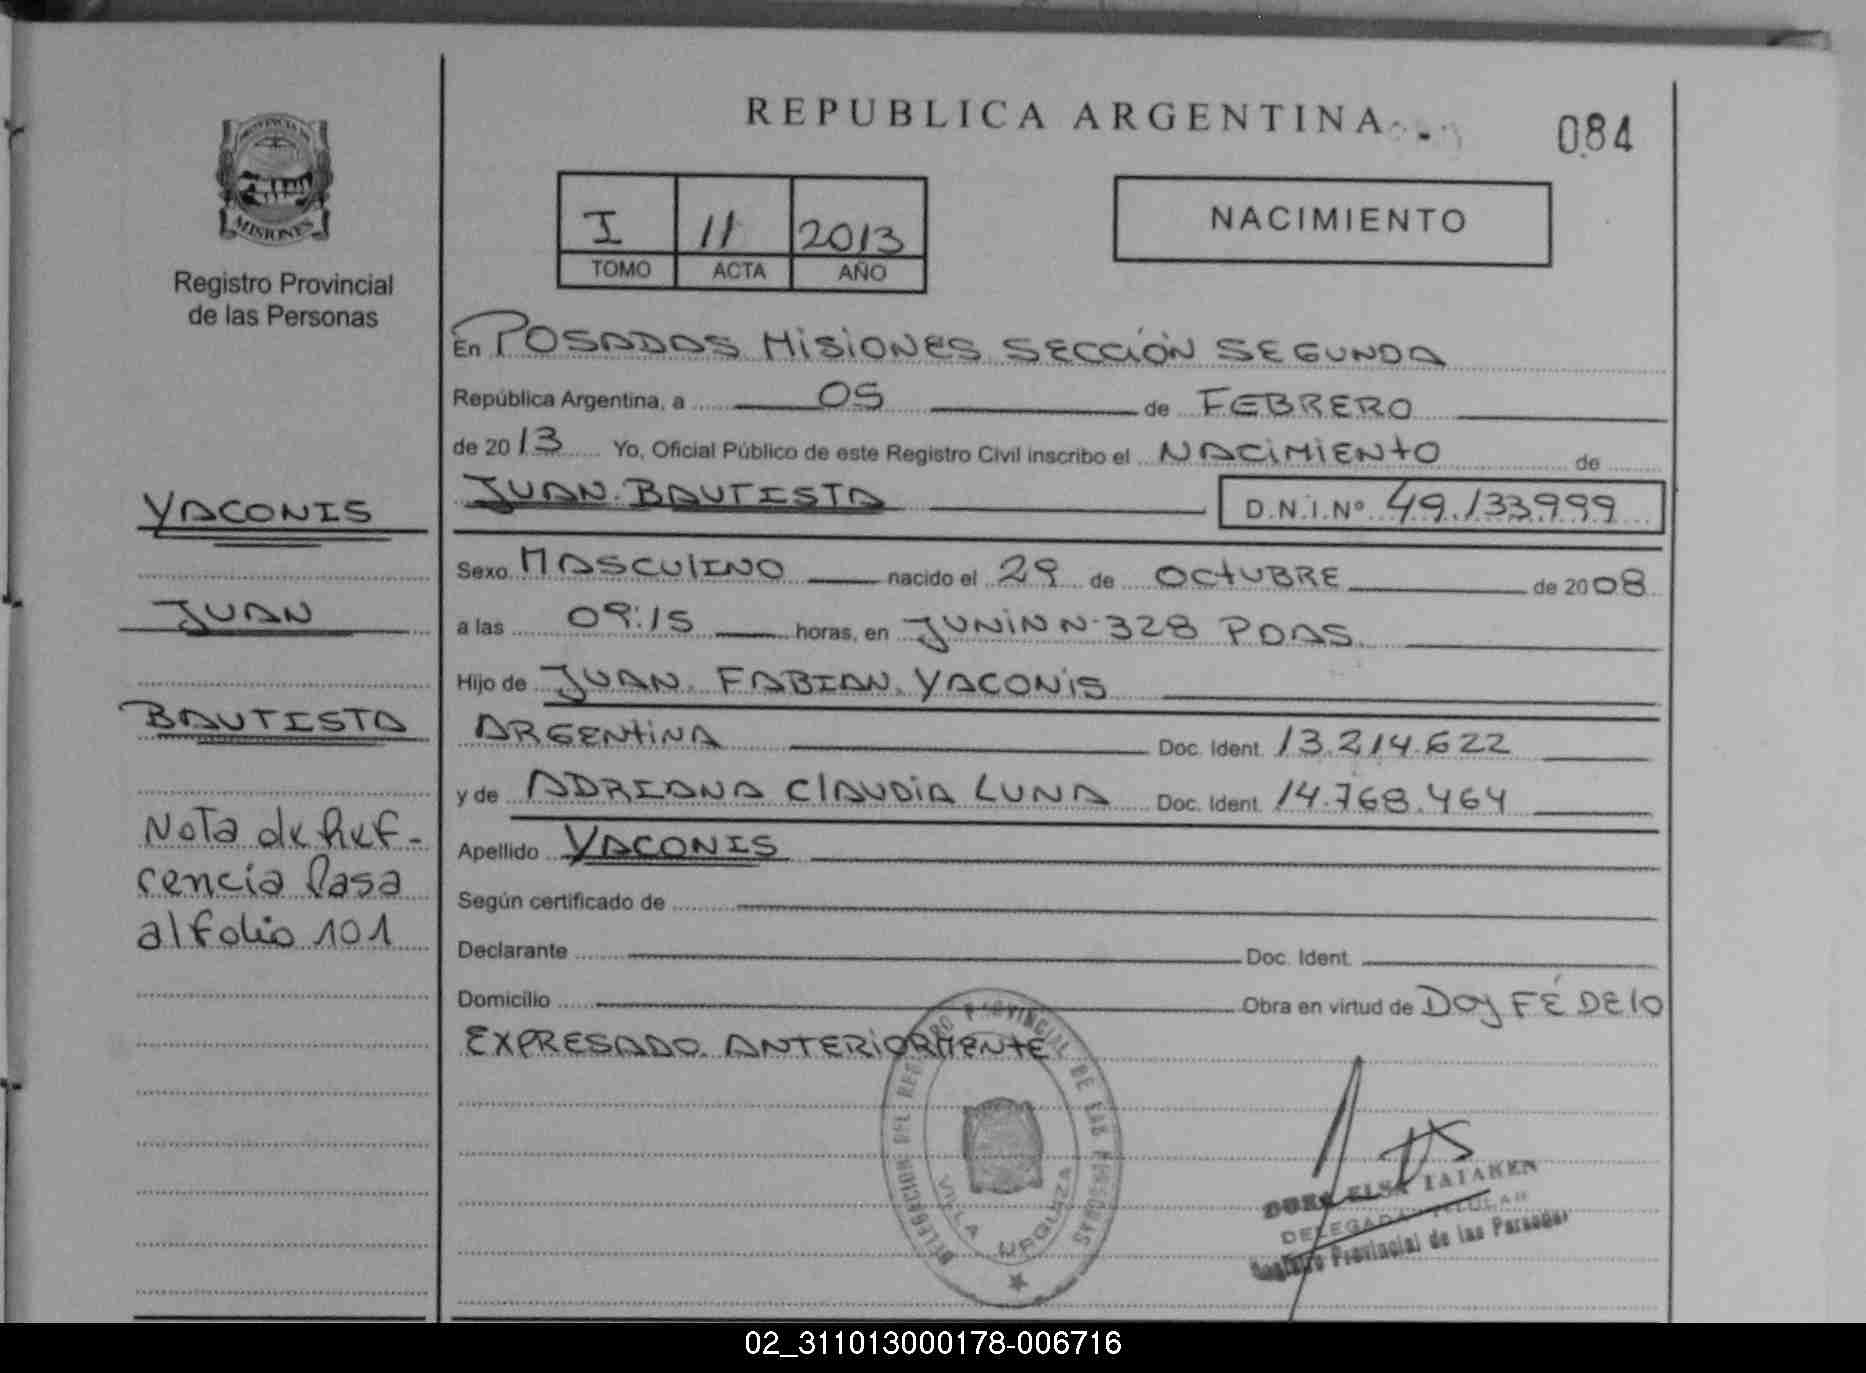 REPUBLICA ARGENTINA
084
PROVINCIA DE
MISIONES
Registro Provincial
de las Personas
I 11 2013
TOMO ACTA AÑO
NACIMIENTO
En POSADAS MISIONES SECCIÓN SEGUNDA
República Argentina, a 05 de FEBRERO
de 2013 Yo, Oficial Público de este Registro Civil inscribo el NACIMIENTO de
JUAN BAUTISTA D.N.I.Nº 49.133999
Sexo MASCULINO nacido el 29 de OCTUBRE de 2008
a las 09:15 horas, en JUNIN N 328 PDAS
Hijo de JUAN FABIAN YACONIS
ARGENTINA Doc. Ident. 13.214.622
y de ADRIANA CLAUDIA LUNA Doc. Ident. 14.768.464
Apellido YACONIS
Según certificado de
Declarante Doc. Ident.
Domicilio Obra en virtud de DOY FÉ DE LO
EXPRESADO ANTERIORMENTE
YACONIS
JUAN
BAUTISTA
Nota de Ref-
rencia Pasa
al folio 101
DELEGACION DEL REGISTRO PROVINCIAL DE LAS PERSONAS
VILLA URQUIZA
ELSA TATAREN
DELEGADA TITULAR
Registro Provincial de las Personas
02_311013000178-006716